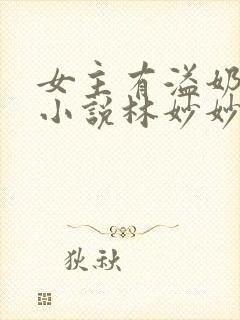 女主有溢奶
小说林妙妙
狄秋